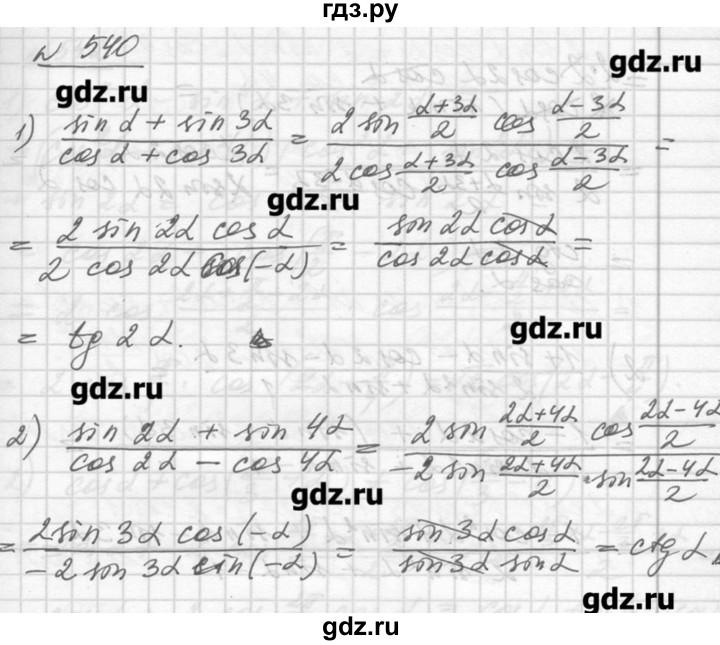 гдз.ру
№ 540
gdz.ru
gdz.ru
1) (sin α + sin 3α)/(cos α + cos 3α) = (2 sin (α+3α)/2 cos (α-3α)/2)/(2 cos (α+3α)/2 cos (α-3α)/2) =
gdz.ru
= (2 sin 2α cos α)/(2 cos 2α cos(-α)) = (sin 2α cos α)/(cos 2α cos α) =
gdz.ru
= tg 2α.
gdz.ru
2) (sin 2α + sin 4α)/(cos 2α - cos 4α) = (2 sin (2α+4α)/2 cos (2α-4α)/2)/(-2 sin (2α+4α)/2 · sin (2α-4α)/2)
gdz.ru
= (2 sin 3α cos (-α))/(-2 sin 3α sin(-α)) = (sin 3α cos α)/(sin 3α sin α) = ctg α
gdz.ru
gdz.ru